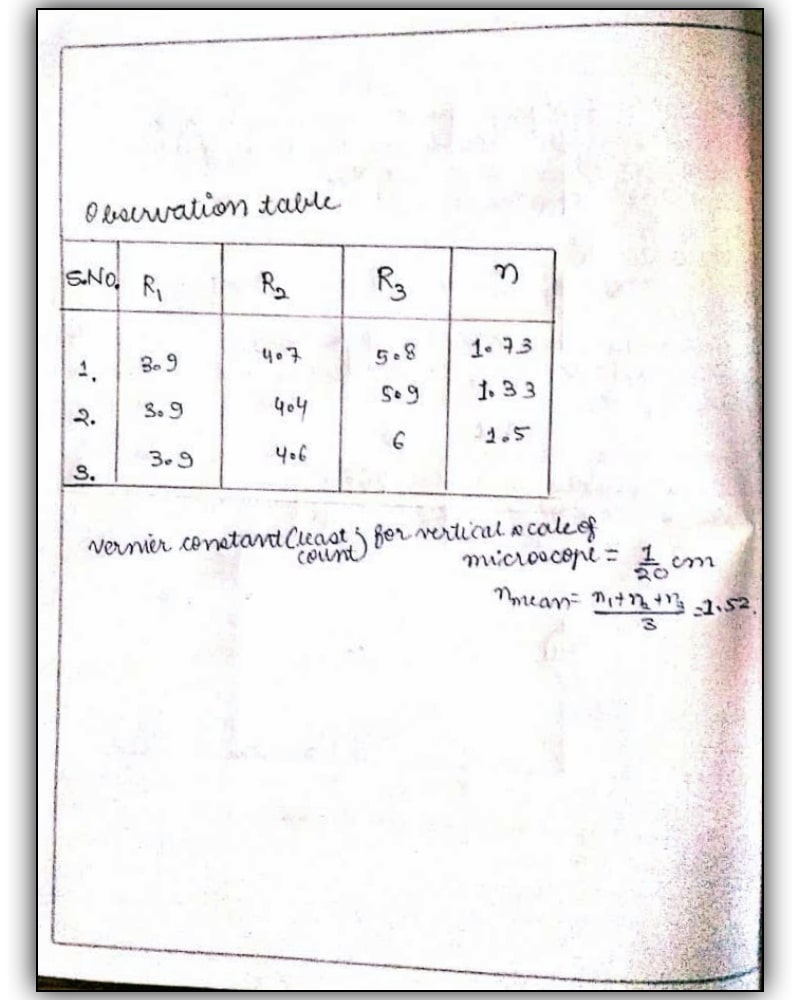 Observation table
S.No. R₁ R₂ R₃ n
1. 3.9 4.7 5.8 1.73
2. 3.9 4.4 5.9 1.33
3. 3.9 4.6 6 1.5
vernier constant (least count) for vertical scale of
microscope = 1/20 cm
nmean = n₁+n₂+n₃/3 = 1.52.